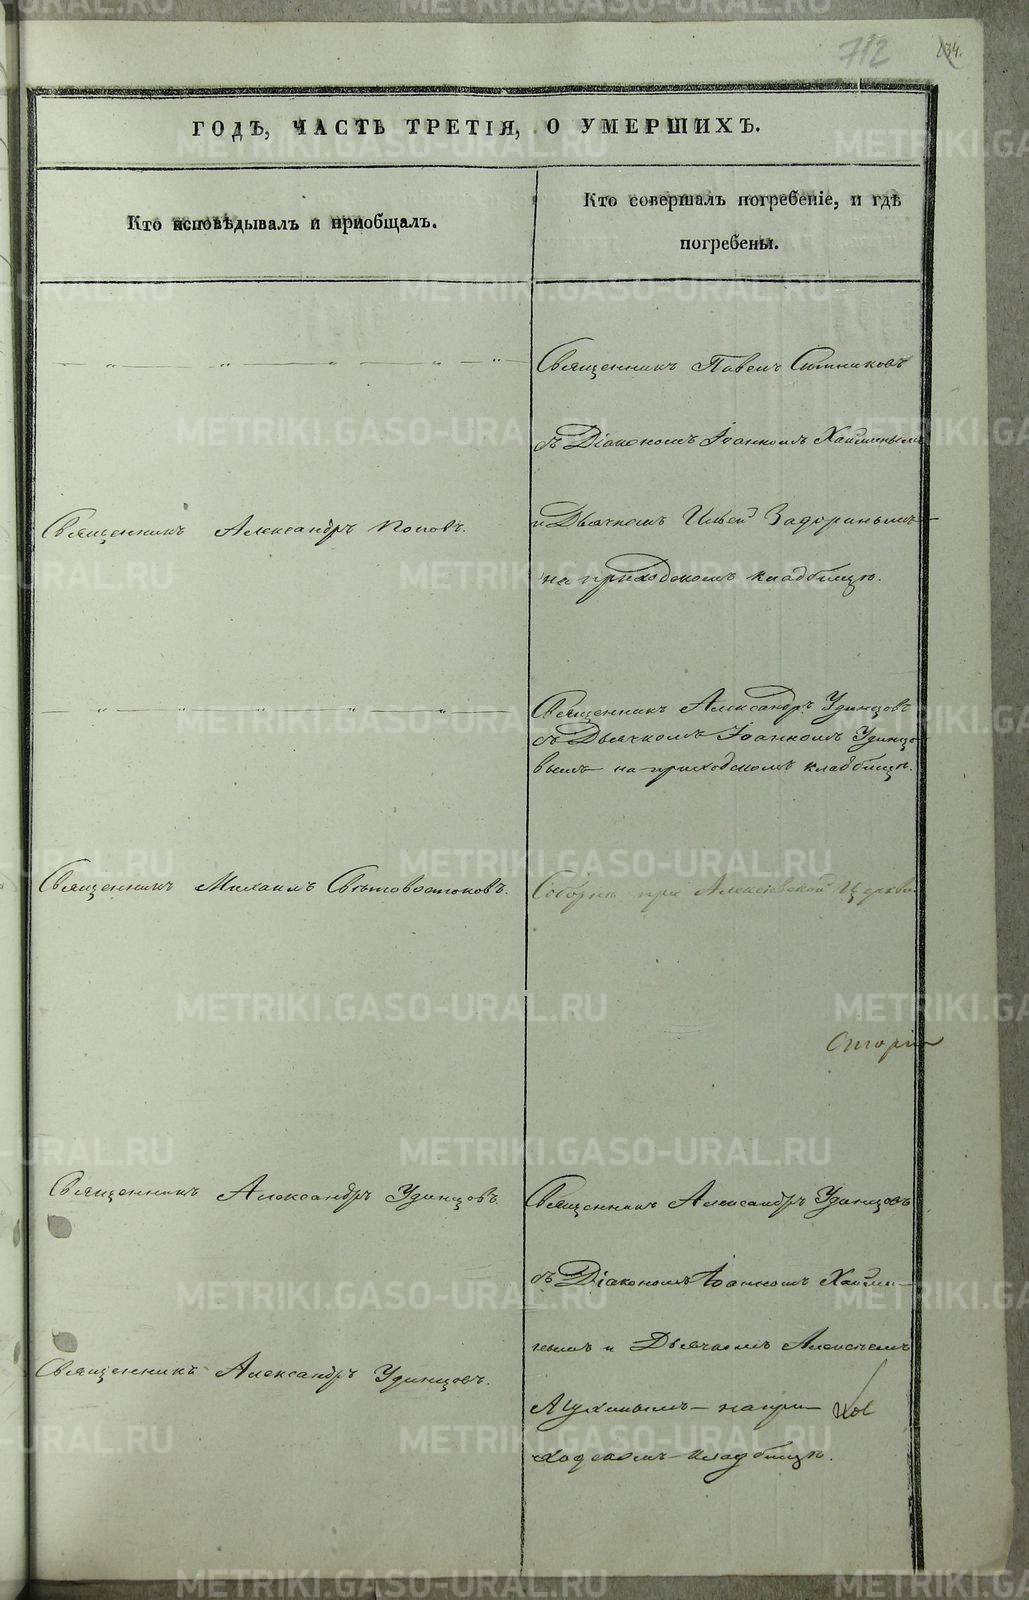 712
234.
ГОДЪ, ЧАСТЬ ТРЕТІЯ, О УМЕРШИХЪ.
Кто исповѣдывалъ и приобщалъ.
Кто совершалъ погребеніе, и гдѣ
погребены.
Священникъ Павелъ Ситниковъ
съ Діакономъ Іоанномъ Хаймины́мъ
Священникъ Александръ Поповъ.
и Дьячкомъ Ильей Задоринымъ
на приходскомъ кладбищѣ.
Священникъ Александръ Удинцовъ
съ Дьячкомъ Іоанномъ Удинцо-
вымъ на приходскомъ кладбищѣ.
Священникъ Михаилъ Свѣтовостоковъ.
Соборнѣ при Алексѣевской Церкви.
Священникъ Александръ Удинцовъ.
Священникъ Александръ Удинцовъ
съ Діакономъ Іоанномъ Хайми-
нымъ и Дьячкомъ Алексѣемъ
Священникъ Александръ Удинцовъ.
на при-
ходскомъ кладбищѣ.
METRIKI.GASO-URAL.RU